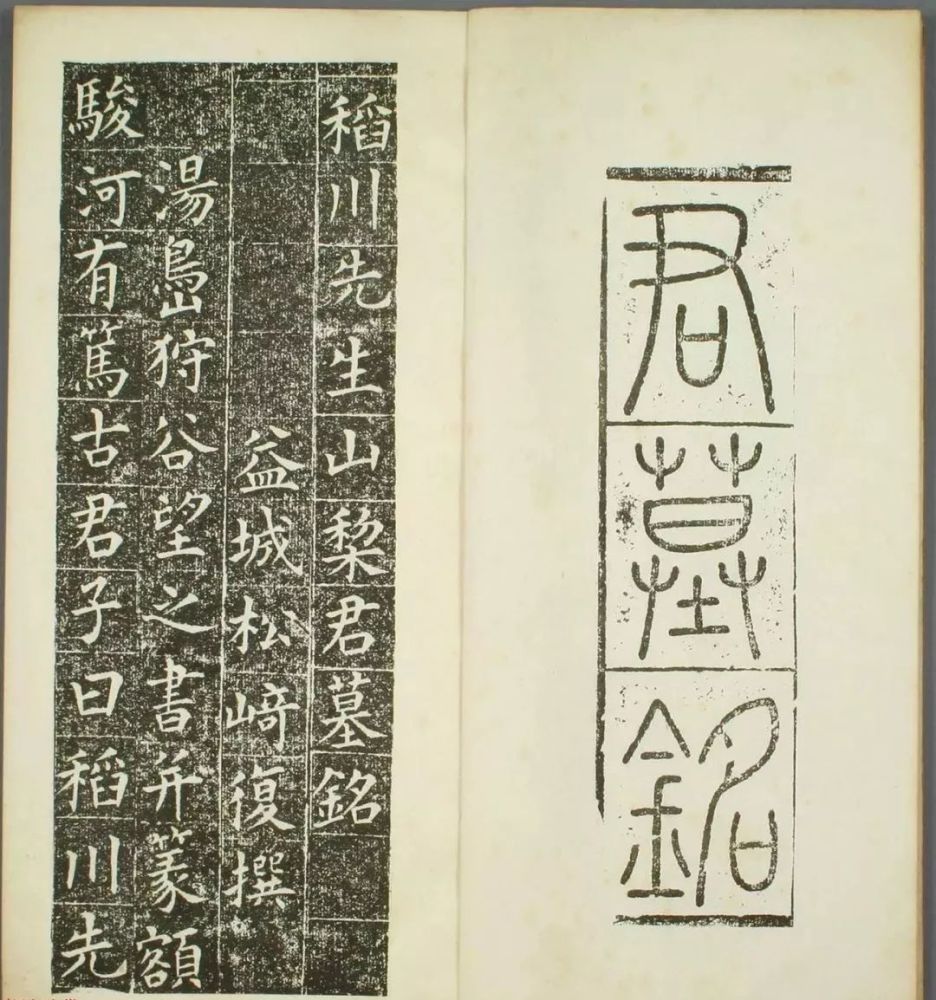 君墓銘
稻川先生山棃君墓銘
益城松﨑復撰
湯㠀狩谷望之書并篆額
駿河有篤古君子曰稻川先